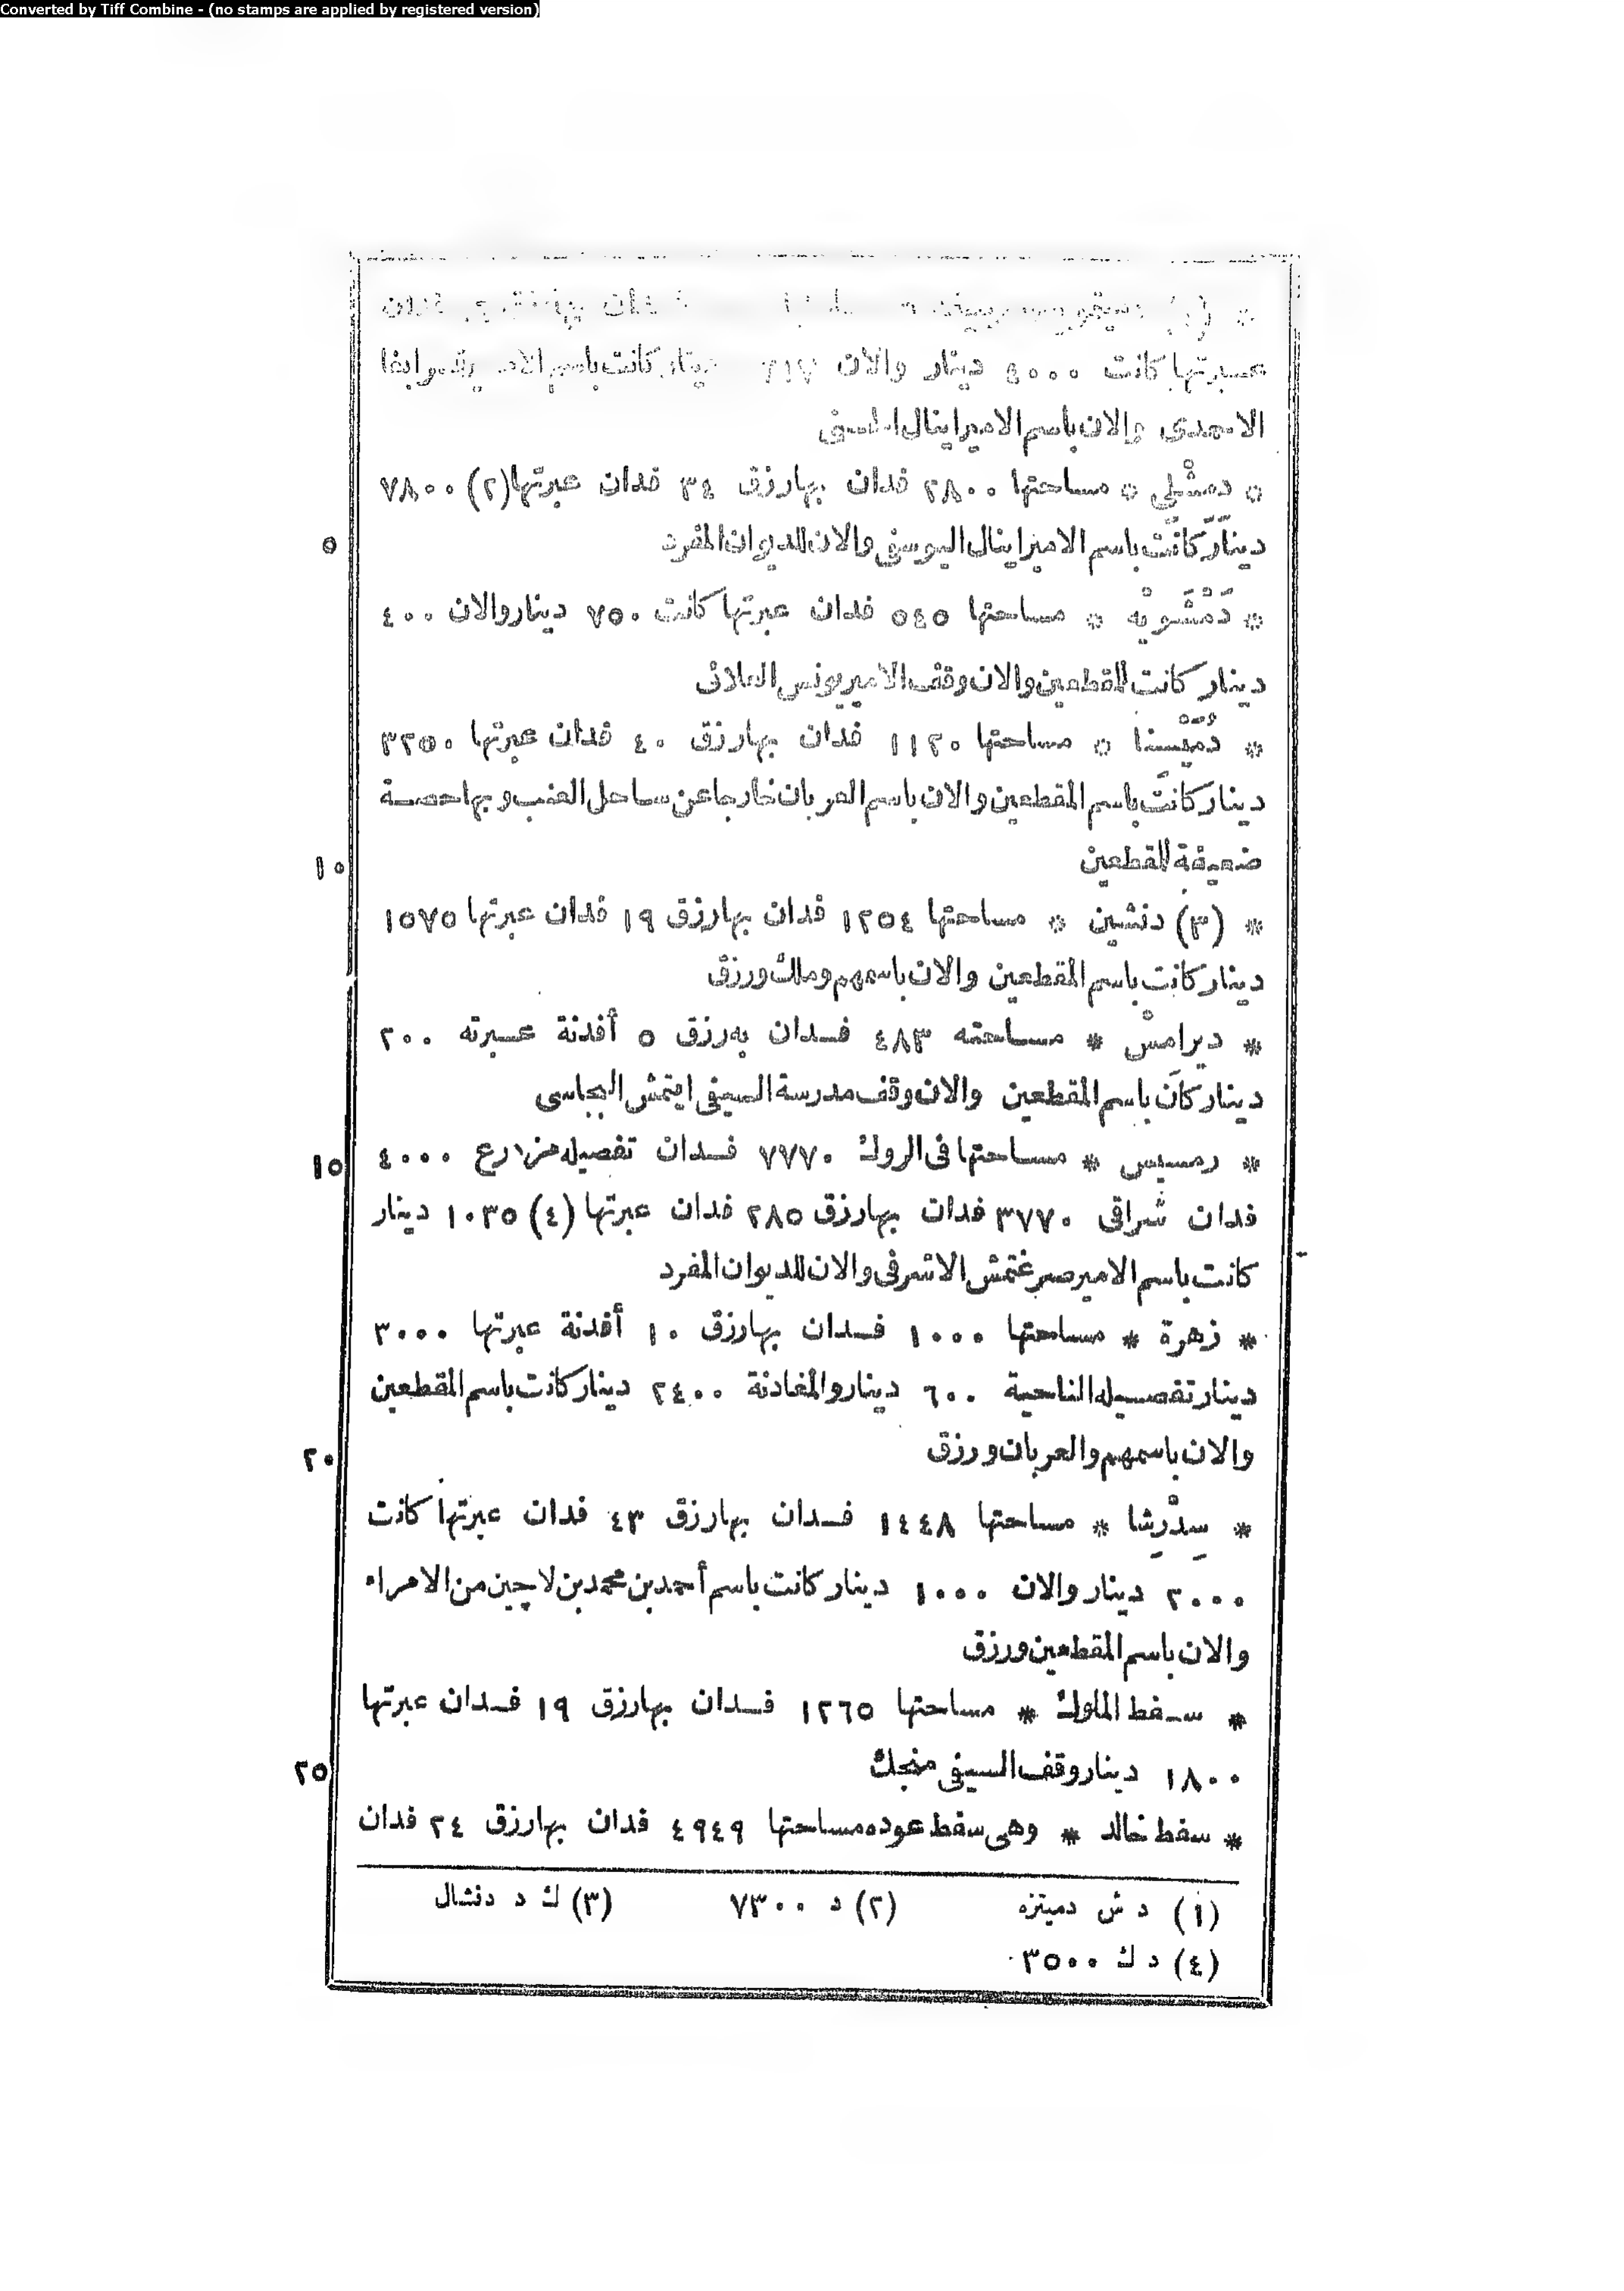 Converted by Tiff Combine - (no stamps are applied by registered version)
* (١) فدان بهارزق فدان
عبرتها كانت ٤٠٠٠ دينار والان دينار كانت باسم
الاحمدى والان باسم الامير اينال
* دمشْلِى * مساحتها ٢٨٠٠ فدان بهارزق ٣٤ فدان عبرتها (٢) ٧٨٠٠
٥ دينار كانت باسم الامير اينال اليوسفى والان للديوان المفرد
* دَمْشَوِيْه * مساحتها ٥٤٥ فدان عبرتها كانت ٧٥٠ دينار والان ٤٠٠
دينار كانت للمقطعين والان وقف الامير يونس العلائى
* دُمَيْسْنا * مساحتها ١١٢٠ فدان بهارزق ٤٠ فدان عبرتها ٣٢٥٠
دينار كانت باسم المقطعين والان باسم العربان خارجا عن ساحل العنب وبها حصة
١٠ ضعيفة للمقطعين
* (٣) دنشين * مساحتها ١٢٥٤ فدان بهارزق ١٩ فدان عبرتها ١٥٧٥
دينار كانت باسم المقطعين والان باسمهم وملك ورزق
* ديرامسْ * مساحته ٤٨٣ فدان به رزق ٥ أفدنة عبرته ٢٠٠
دينار كان باسم المقطعين والان وقف مدرسة السيفى ايتمش البجاسى
١٥ * رمسيس * مساحتها فى الروك ٧٧٧٠ فدان تفصيله مزارع ٤٠٠٠
فدان شراقى ٣٧٧٠ فدان بهارزق ٢٨٥ فدان عبرتها (٤) ١٠٣٥ دينار
كانت باسم الامير صرغتمش الاشرفى والان للديوان المفرد
* زهرة * مساحتها ١٠٠٠ فدان بهارزق ١٠ أفدنة عبرتها ٣٠٠٠
دينار تفصيله الناحية ٦٠٠ دينار والمغادنة ٢٤٠٠ دينار كانت باسم المقطعين
٢٠ والان باسمهم والعربان ورزق
* سِدْرِشا * مساحتها ١٤٤٨ فدان بهارزق ٤٣ فدان عبرتها كانت
٢٠٠٠ دينار والان ١٠٠٠ دينار كانت باسم أحمد بن محمد بن لاجين من الامراء
والان باسم المقطعين ورزق
* سفط الملوك * مساحتها ١٢٦٥ فدان بهارزق ١٩ فدان عبرتها
٢٥ ١٨٠٠ دينار وقف السيفى منجك
* سفط خالد * وهى سفط عوده مساحتها ٤٩٤٩ فدان بهارزق ٢٤ فدان
(١) د ش دميتزه (٢) د ٧٣٠٠ (٣) ك د دنشال
(٤) د ك ٣٥٠٠